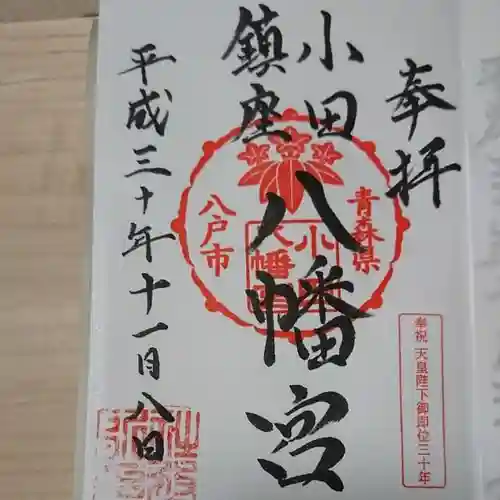 奉拝
小田
鎮座
八幡宮
青森県
八戸市
小田
八幡宮
平成三十年十一月八日
奉祝 天皇陛下御即位三十年